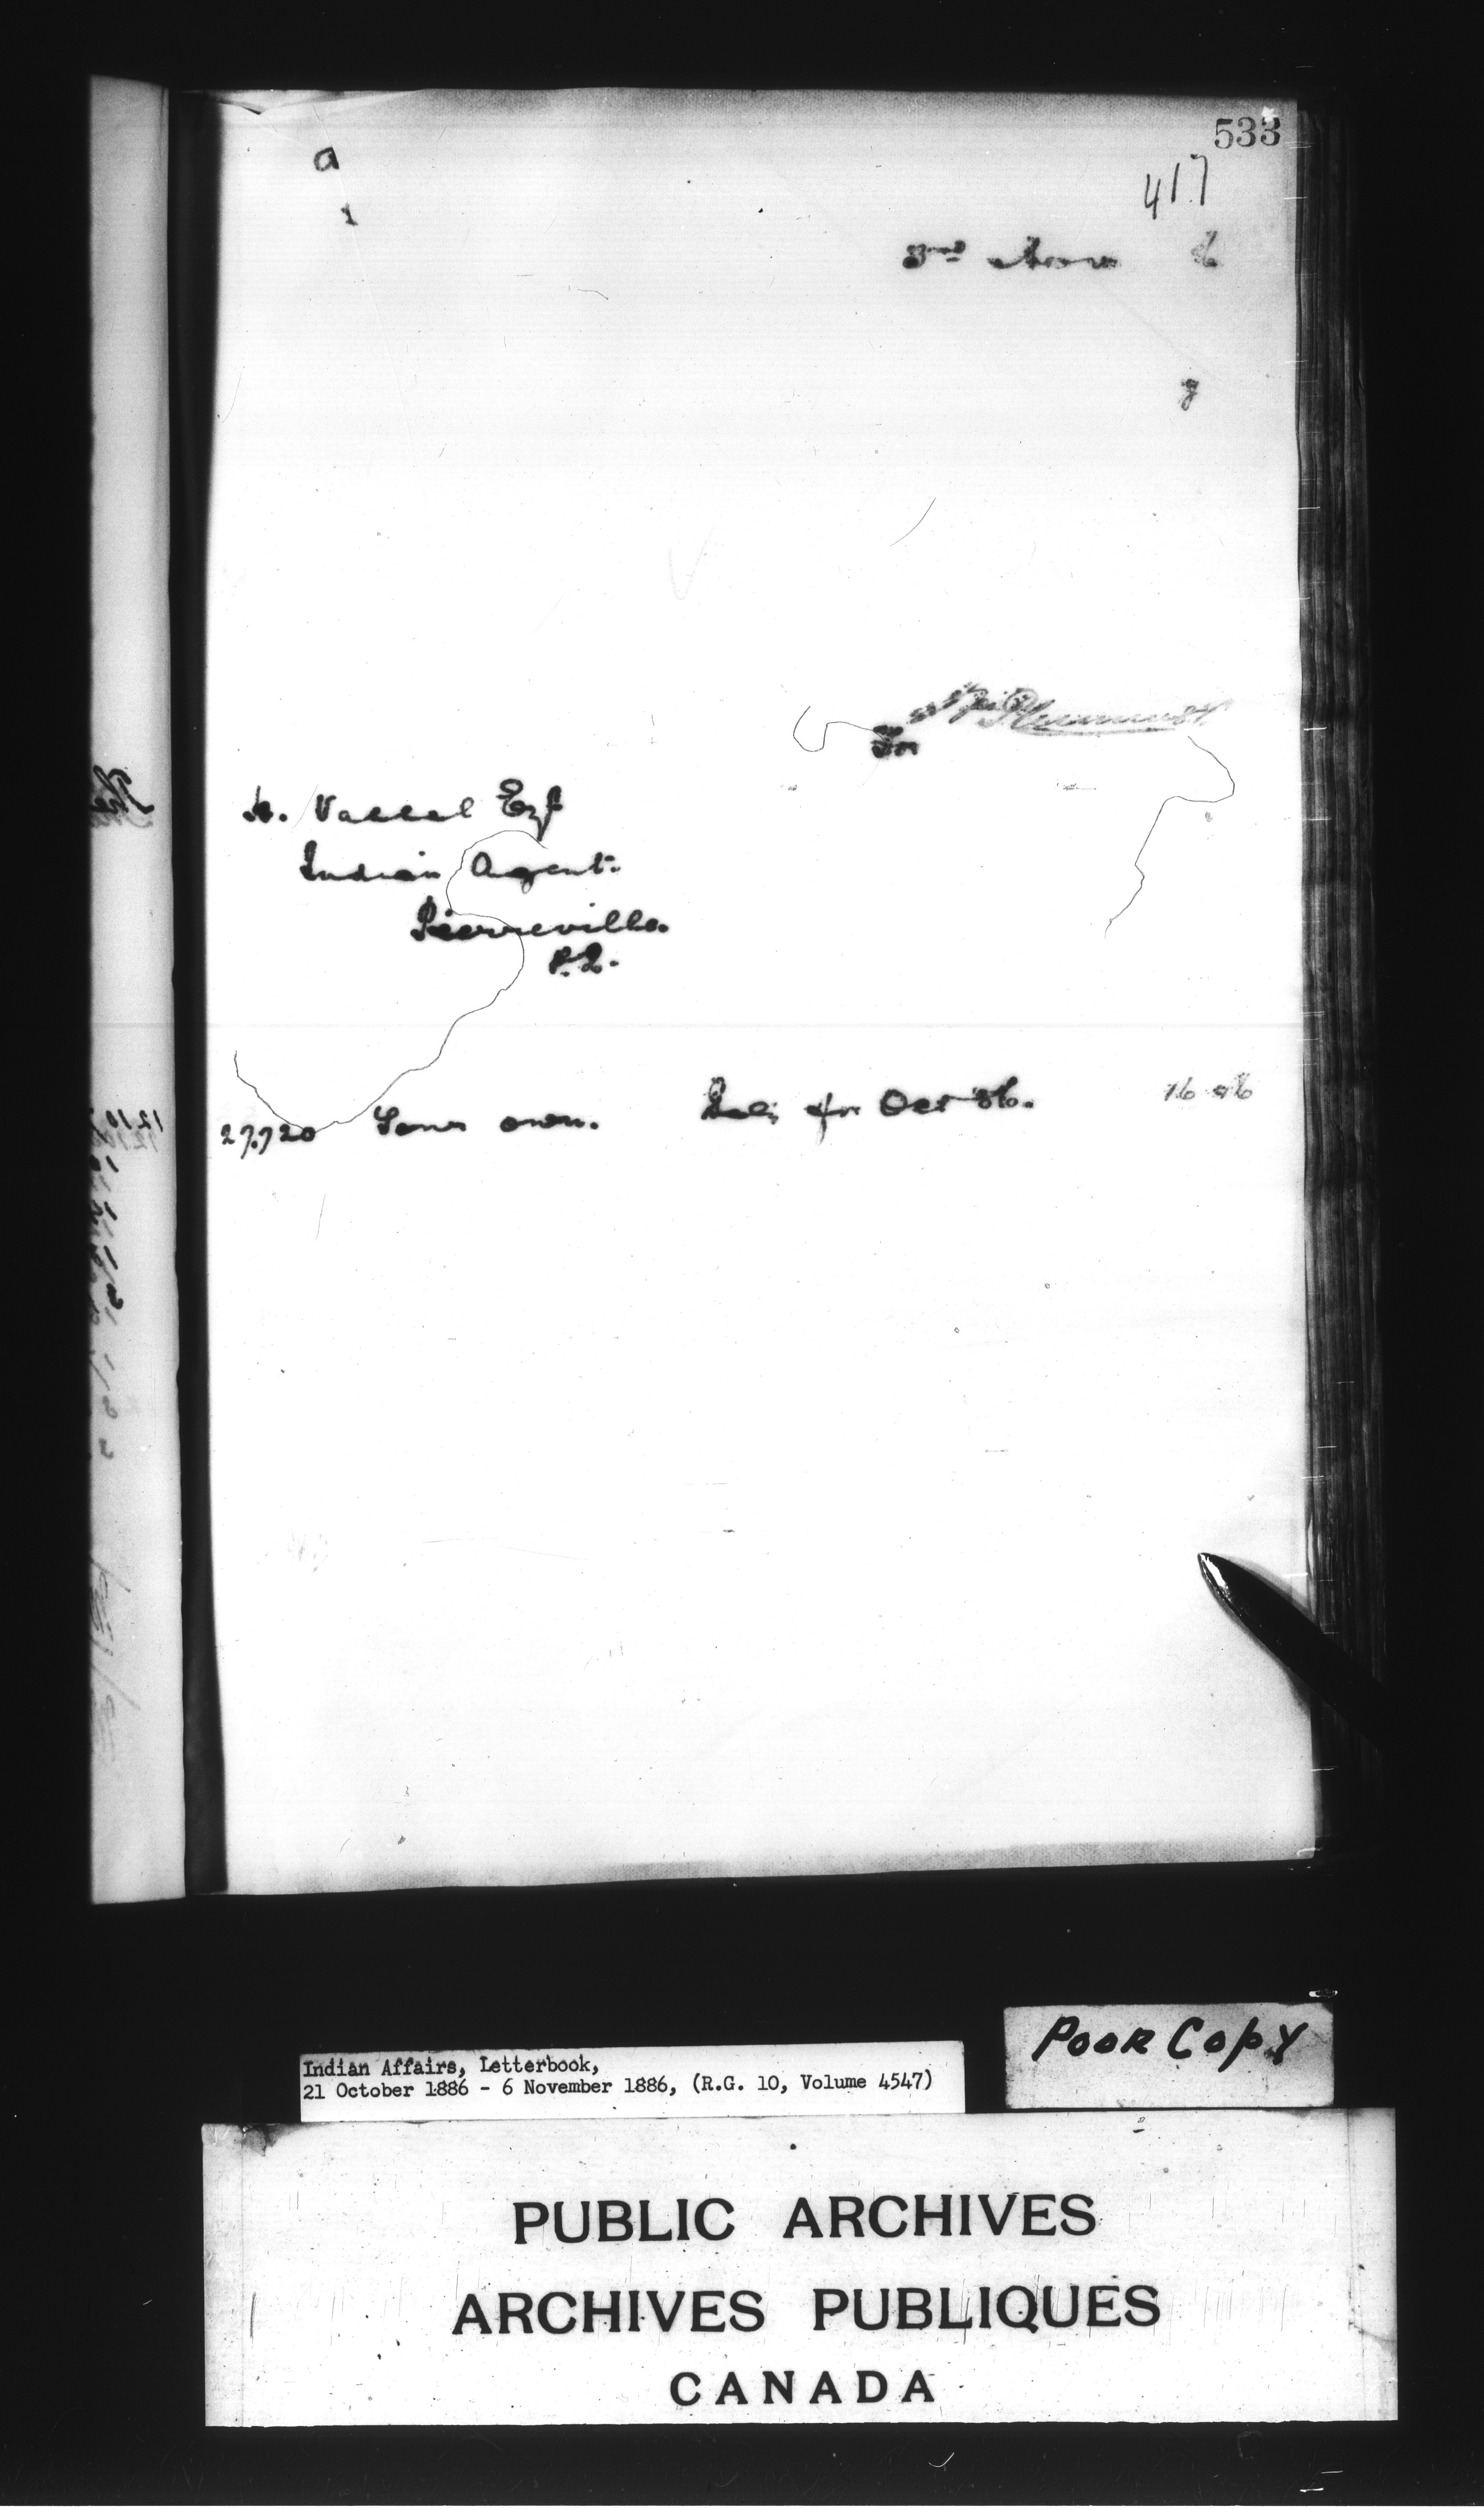 533
a
417
3rd Nov 6
y
For
H. Vassal Esq
Indian Agent.
Pierreville.
P.Q.
27.720 Your own. Saly for Oct 86. 16 66
Poor Copy
Indian Affairs, Letterbook,
21 October 1886 - 6 November 1886, (R.G. 10, Volume 4547)
PUBLIC ARCHIVES
ARCHIVES PUBLIQUES
CANADA